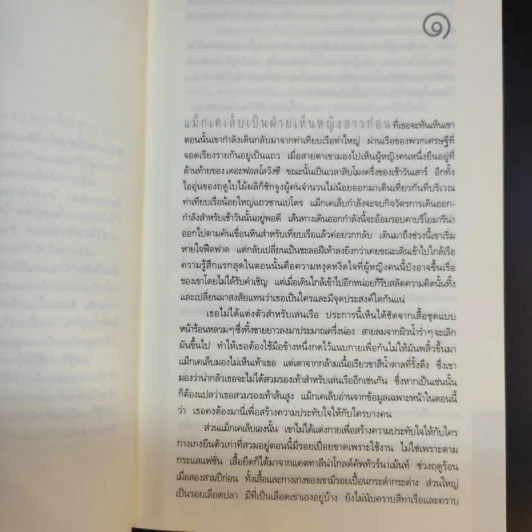 ๑
แม็กเคเล็บเป็นฝ่ายเห็นหญิงสาวก่อนที่เธอจะทันเห็นเขา
ตอนนั้นเขากำลังเดินกลับมาจากท่าเทียบเรือท่าใหญ่ ผ่านเรือของพวกเศรษฐีที่
จอดเรียงรายกันอยู่เป็นแถว เมื่อสายตาเขามองไปเห็นผู้หญิงคนหนึ่งยืนอยู่ที่
ด้านท้ายของเดอะฟอลโลวิงซี ขณะนั้นเป็นเวลาสิบโมงครึ่งของเช้าวันเสาร์ อีกทั้ง
ไออุ่นของฤดูใบไม้ผลิก็ชักจูงผู้คนจำนวนไม่น้อยออกมาเดินเที่ยวกันที่บริเวณ
ท่าเทียบเรือน้อยใหญ่แถวซานเปโดร แม็กเคเล็บกำลังจะจบกิจวัตรการเดินออก-
กำลังสำหรับเช้าวันนั้นอยู่พอดี เส้นทางเดินออกกำลังนี้จะอ้อมรอบคาบรีโยมารีน่า
ออกไปตามคันเขื่อนหินสำหรับเทียบเรือแล้วค่อยวกกลับ เดินมาถึงช่วงนี้เขาเริ่ม
หายใจฟืดฟาด แต่กลับเปลี่ยนเป็นชะลอฝีเท้าลงยิ่งกว่าเคยขณะเดินเข้าไปใกล้เรือ
ความรู้สึกแรกสุดในตอนนั้นคือความหงุดหงิดใจที่ผู้หญิงคนนี้บังอาจขึ้นเรือ
ของเขาโดยไม่ได้รับคำเชิญ แต่เมื่อเดินใกล้เข้าไปอีกหน่อยก็รีบสลัดความคิดนั้นทิ้ง
และเปลี่ยนมาสงสัยแทนว่าเธอเป็นใครและมีจุดประสงค์ใดกันแน่
เธอไม่ได้แต่งตัวสำหรับเล่นเรือ ประการนี้เห็นได้ชัดจากเสื้อชุดแบบ
หน้าร้อนหลวมๆซึ่งทิ้งชายยาวลงมาประมาณครึ่งน่อง สายลมจากผิวน้ำร่ำจะเลิก
มันขึ้นไป ทำให้เธอต้องใช้มือข้างหนึ่งกดไว้แนบกายเพื่อกันไม่ให้มันพลิ้วขึ้นมา
แม็กเคเล็บมองไม่เห็นเท้าเธอ แต่เดาจากกล้ามเนื้อเรียวขาสีน้ำตาลที่รั้งตึง ซึ่งเขา
มองว่าน่ากลัวเธอจะไม่ได้สวมรองเท้าสำหรับเล่นเรืออีกเช่นกัน ซึ่งหากเป็นเช่นนั้น
ก็ต้องแปลว่าเธอสวมรองเท้าส้นสูง แม็กเคเล็บอ่านจากข้อมูลเฉพาะหน้าในตอนนี้
ว่า เธอคงต้องมานี่เพื่อสร้างความประทับใจให้กับใครบางคน
ส่วนแม็กเคเล็บเองนั้น เขาไม่ได้แต่งกายเพื่อสร้างความประทับใจให้กับใคร
กางเกงยีนตัวเก่าที่สวมอยู่ตอนนี้มีรอยเปื่อยขาดเพราะใช้งาน ไม่ใช่เพราะตาม
กระแสแฟชั่น เสื้อยืดก็ได้มาจากแคตทาลีน่าโกลด์คัพทัวร์นาเม้นท์ ช่วงฤดูร้อน
เมื่อสองสามปีก่อน ทั้งเสื้อและกางเกงของเขามีรอยเปื้อนกระดำกระด่าง ส่วนใหญ่
เป็นรอยเลือดปลา มีที่เป็นเลือดเขาเองอยู่บ้าง ยังไม่นับคราบสีทาเรือและคราบ